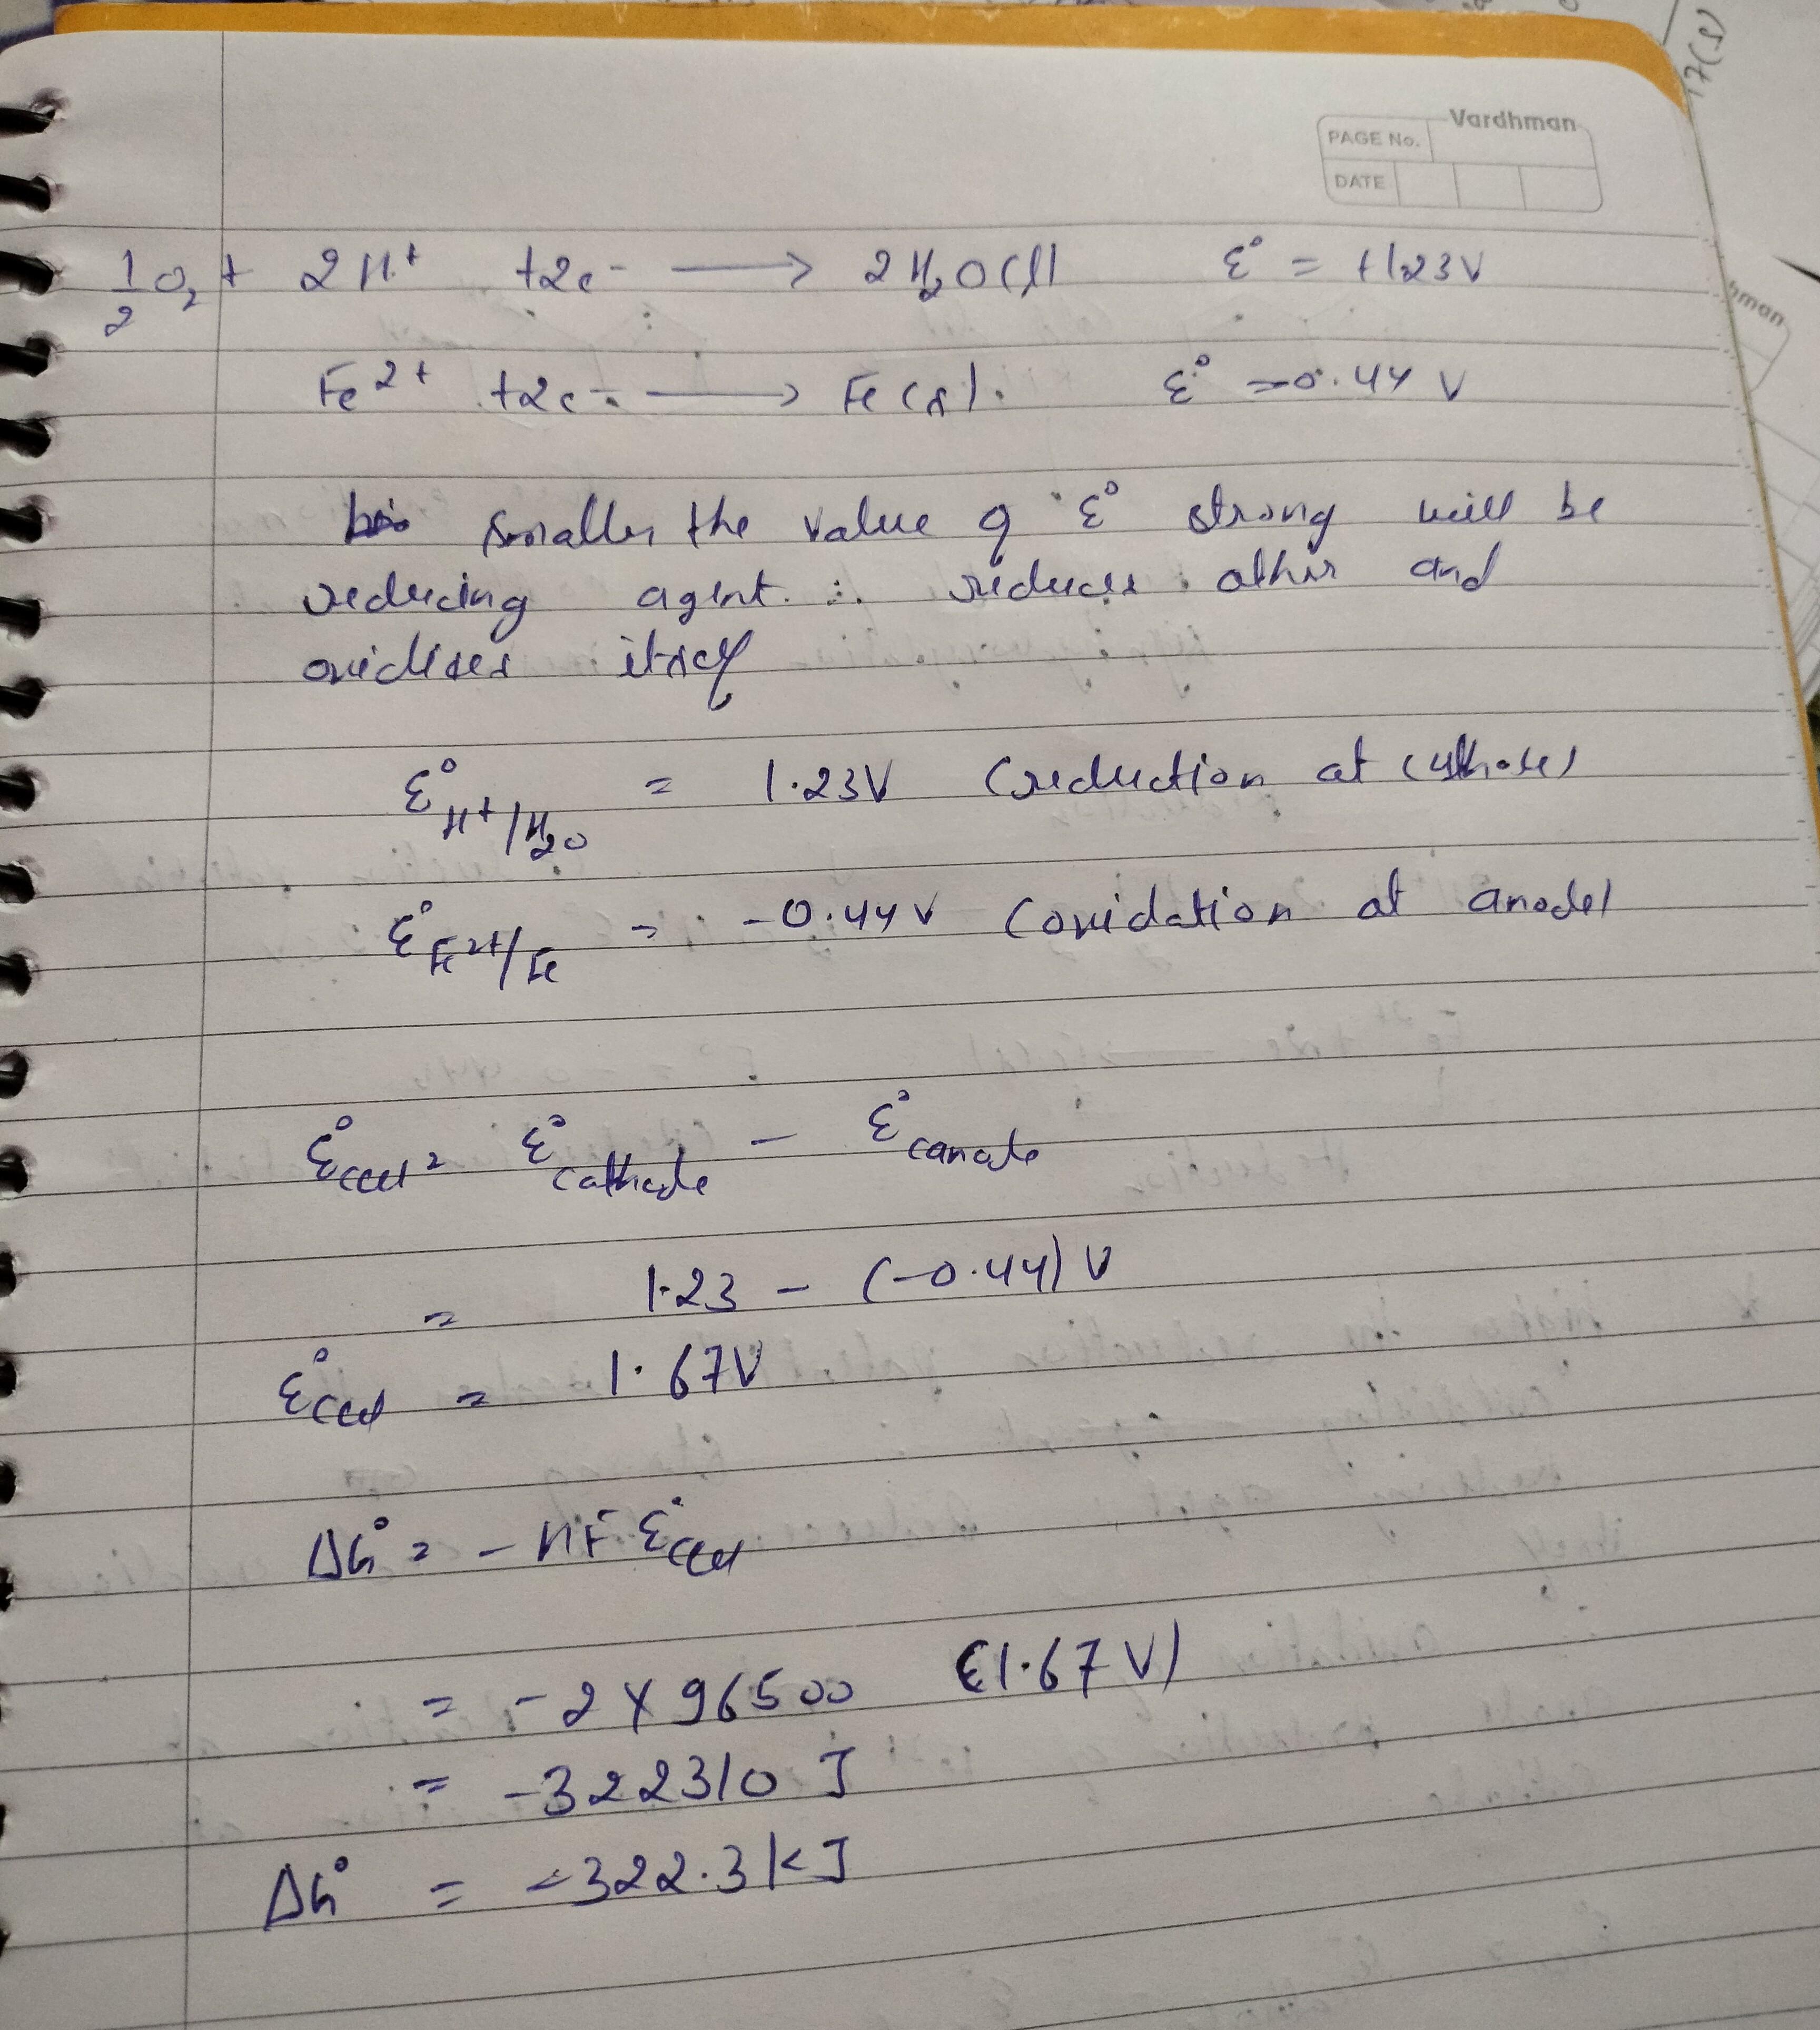 Vardhman
PAGE No.
DATE
17(S)
hman
1/2 O₂ + 2H⁺ +2e⁻ ⟶ 2H₂O(l) ε° = +1.23V
Fe²⁺ +2e⁻ ⟶ Fe(s). ε° = -0.44 V
smaller the value of ε° strong will be
reducing agent. ∴ reduces other and
oxidises itself
ε°H⁺/H₂O = 1.23V (reduction at cathode)
ε°Fe²⁺/Fe = -0.44V (oxidation at anode)
ε°cell = ε°cathode - ε°anode
= 1.23 - (-0.44) V
ε°cell = 1.67V
ΔG° = -nFε°cell
= -2 × 96500 (1.67V)
= -322310 J
ΔG° = -322.3 kJ